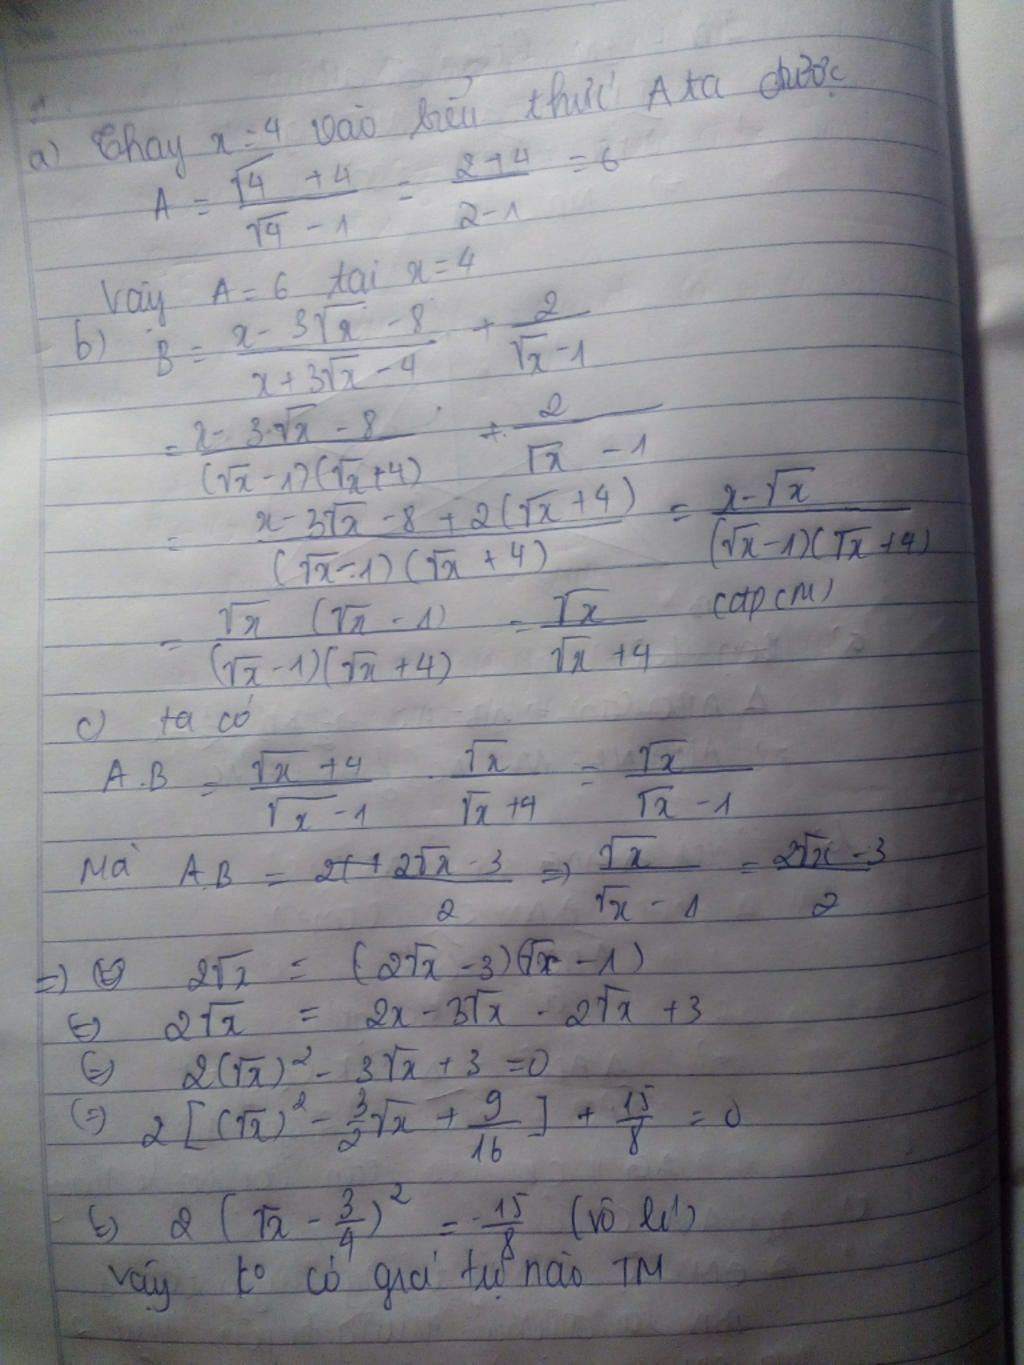 a) Thay x=4 vào biểu thức A ta được
A = (√4 + 4)/(√4 - 1) = (2+4)/(2-1) = 6
Vậy A = 6 tại x = 4
b) B = (x - 3√x - 8)/(x + 3√x - 4) + 2/(√x - 1)
= (x - 3√x - 8)/((√x - 1)(√x + 4)) + 2/(√x - 1)
= (x - 3√x - 8 + 2(√x + 4))/((√x - 1)(√x + 4)) = (x - √x)/((√x - 1)(√x + 4))
= (√x (√x - 1))/((√x - 1)(√x + 4)) = √x/(√x + 4) (đpcm)
c) ta có
A.B = (√x + 4)/(√x - 1) . √x/(√x + 4) = √x/(√x - 1)
Mà A.B = (2√x - 3)/2 => √x/(√x - 1) = (2√x - 3)/2
=> 2√x = (2√x - 3)(√x - 1)
(=) 2√x = 2x - 3√x - 2√x + 3
(=) 2(√x)² - 3√x + 3 = 0
(=) 2[(√x)² - 3/2 √x + 9/16] + 15/8 = 0
(=) 2(√x - 3/4)² = -15/8 (vô lí)
Vậy ko có giá trị nào TM